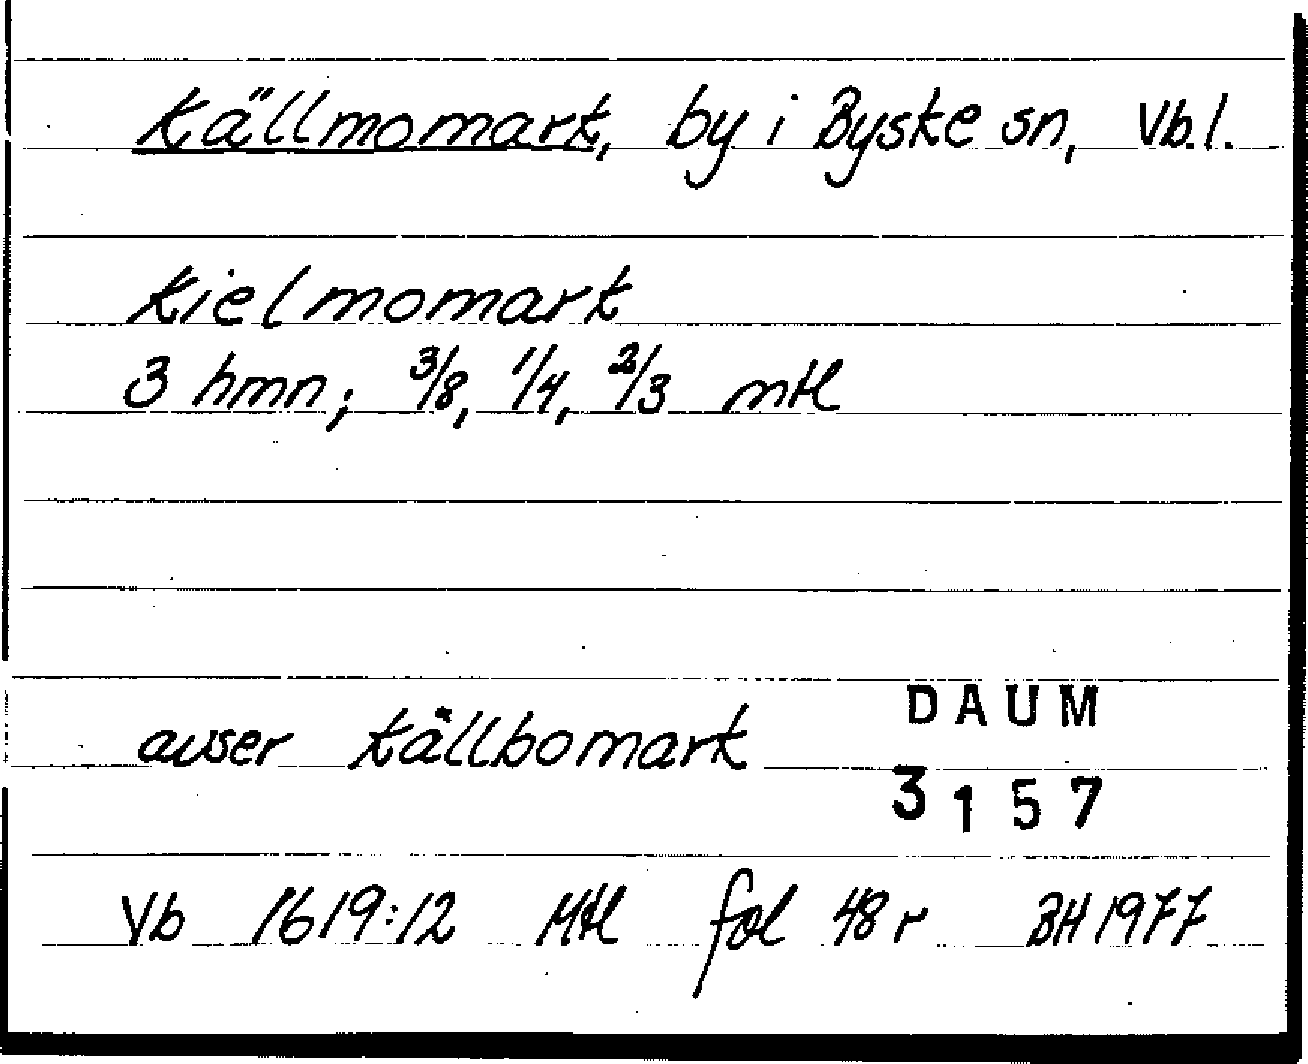 Källmomark, by i Byske sn, Vb.l.
Kielmomark
3 hmn; 3/8, 1/4, 2/3 mtl
avser Källbomark
DAUM
3157
Vb 1619:12 Mtl fol 48 r BH 1977